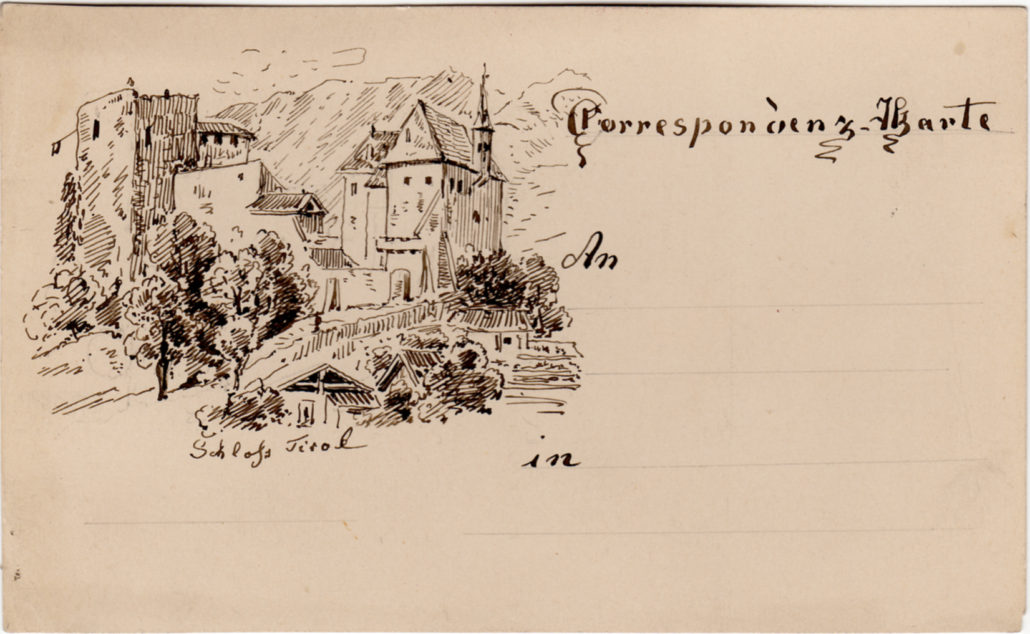 Correspondenz-Karte
An
Schloß Tirol
in